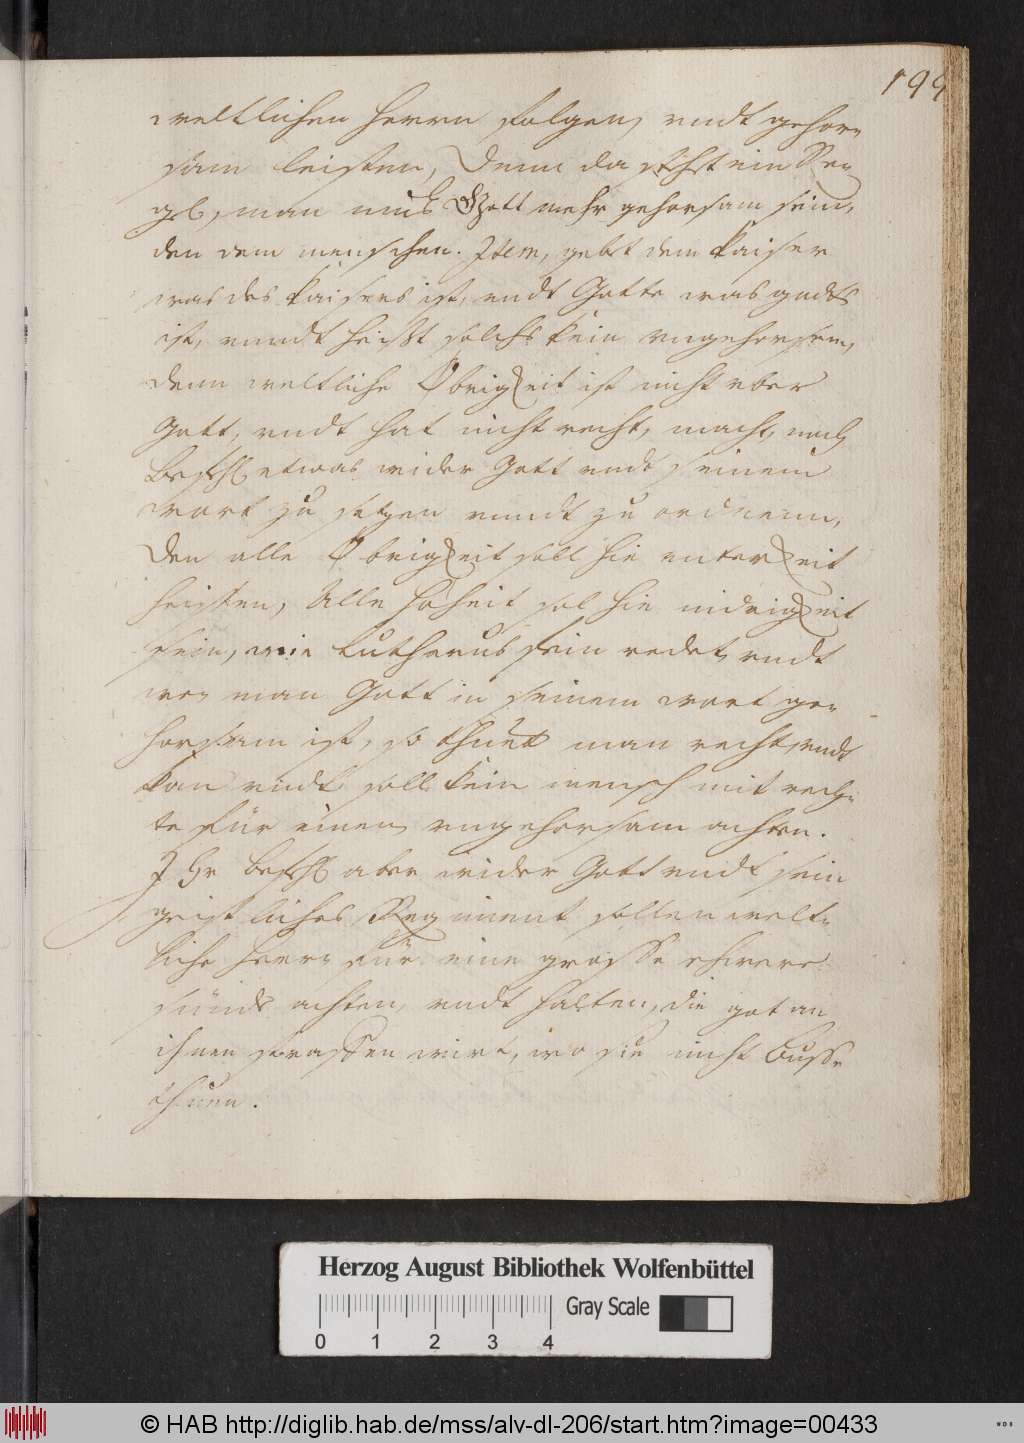 199
weltlichen herrn folgen, vndt gehor„
sam leisten, Denn da stehet ein Re„
gel, man mus Gott mehr gehorsam sein,
den dem menschen. Item, gebt dem Kaiser
was des Kaisers ist, vndt Gotte was gottes
ist, vnndt heist solchs kein vngehorsam,
denn weltliche Obrigkeit ist nicht vber
Gott, vndt hat nicht recht, macht, noch
befehl etwas wider Gott vndt seinem
wort zu setzen vnndt zu ordnenn,
Den alle Obrigkeit soll hie unterkeit
heissen, Alle hoheit sol hie nidrigkeit
sein, wie Lutherus fein redet, vndt
wen man Gott in seinem wort ge„
horsam ist, so thuet man recht, vndt
kan vndt soll kein mensch mit rech„
te für einen vngehorsam achten.
Ihr befehl aber wider Gott vndt sein
geistliches Regiment sollen welt„
liche herrn für eine grosse schwere
sünde achten, vndt halten, die got an
ihnen straffen wirt, wo sie nicht busse
thuen.
Herzog August Bibliothek Wolfenbüttel
Gray Scale
0 1 2 3 4
© HAB http://diglib.hab.de/mss/alv-dl-206/start.htm?image=00433